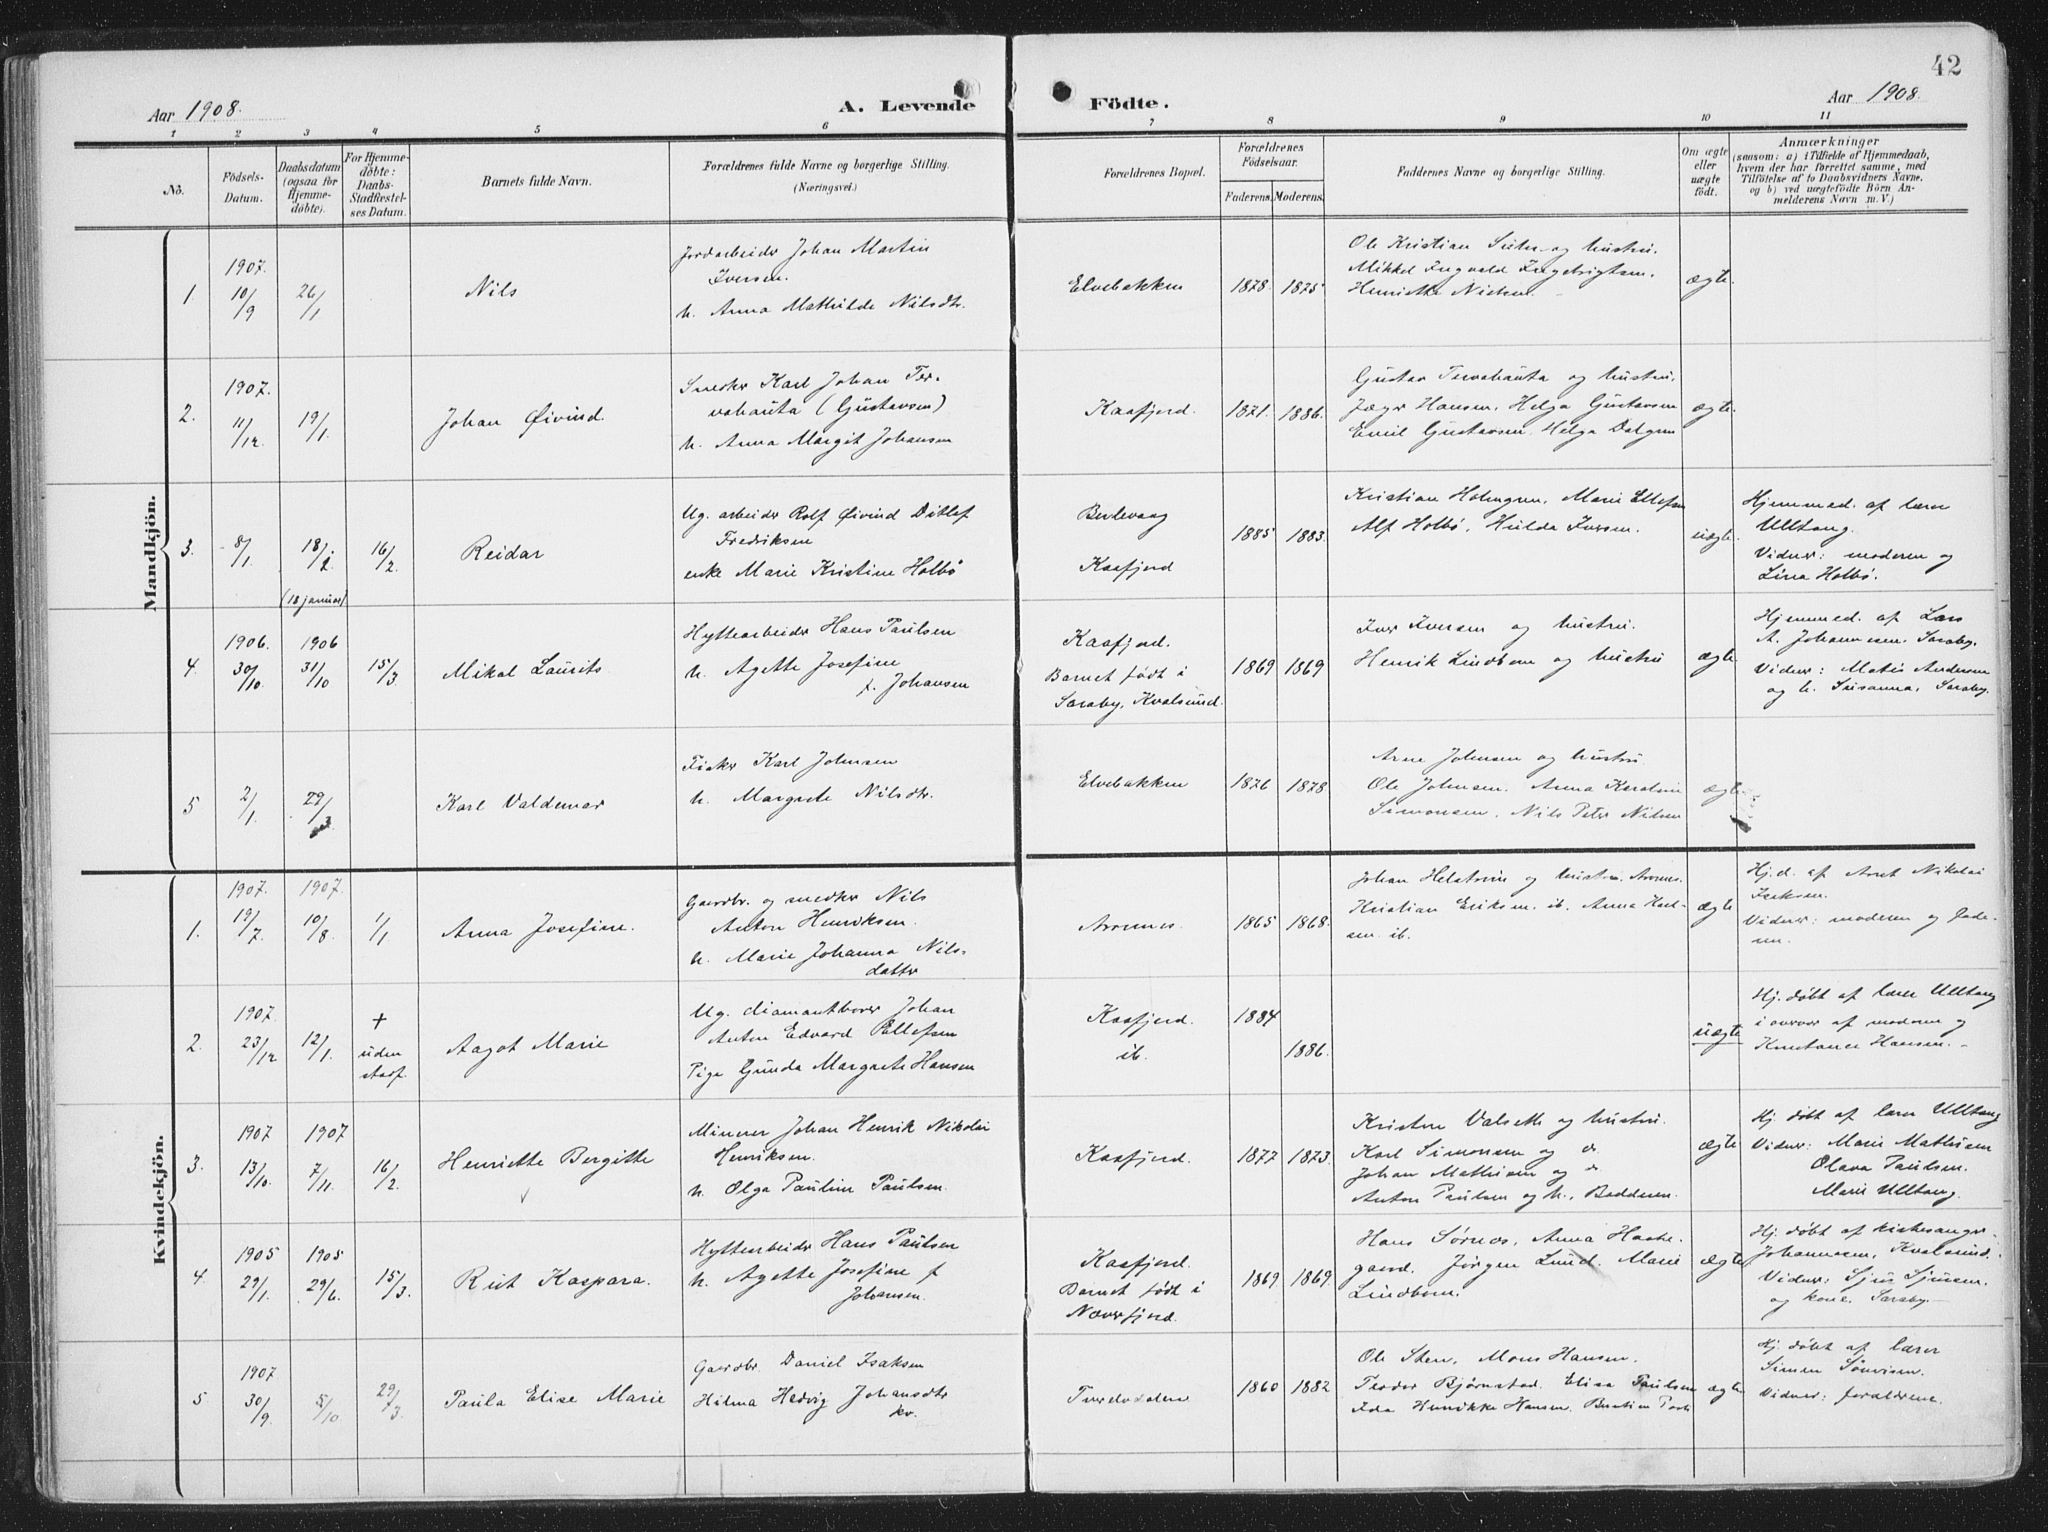 42
Aar 1908.
A. Levende Födte.
Aar 1908.
1 2 3 4 5 6 7 8 9 10 11
No.
Fødsels-
Datum.
Daabsdatum
(ogsaa for
Hjemme-
døbte).
For Hjemme-
døbte:
Daabs-
Stadfæstel-
ses Datum.
Barnets fulde Navn.
Forældrenes fulde Navne og borgerlige Stilling.
(Næringsvei.)
Forældrenes Bopæl.
Forældrenes
Fødselsaar.
Faderens. Moderens.
Faddernes Navne og borgerlige Stilling.
Om ægte
eller
uægte
født.
Anmærkninger
(saasom: a) i Tilfælde af Hjemmedaab,
hvem der har forrettet samme, med
Tilføielse af to Daabsvidners Navne.
og b) ved uægtefødte Börn An-
melderens Navn m. V.)
Mandkjön.
1.
1907.
10/9
26/1
Nils
Jordarbeider Johan Martin
Iversen.
h. Anna Mathilde Nilsdtr.
Elvebakken
1878 1875
Ole Kristian Suhr og hustru.
Mikkel Ingvald Ingebrigtsen.
Henriette Nielsen.
ægte.
2.
1907.
11/12
19/1.
Johan Øivind.
Snedker Karl Johan Ter-
vahauta (Gustavsen)
h. Anna Margit Johansen
Kaafjord.
1871. 1886.
Gustav Tervahauta og hustru.
Jæger Hansen. Helga Gustavsen
Emil Gustavsen. Helga Dalgren
ægte.
3.
8/1.
18/1.
(18 januar)
16/2
Reidar
Ug. arbeider Rolf Øivind Ditlef
Fredriksen
enke Marie Kristine Holbø
Berlevaag
Kaafjord
1885 1883.
Kristian Holmgren. Marie Ellefsen
Alf Holbø. Hulda Iversen.
uægte.
Hjemmed. af lærer
Ulltang.
Vidner: moderen og
Lina Holbø.
4.
1906.
30/10.
1906
31/10
15/3.
Mikal Laurits.
Hyttearbeider Hans Paulsen
h. Agette Josefine
f. Johansen
Kaafjord.
Barnet født i
Saraby, Kvalsund.
1869 1869
Iver Iversen og hustru.
Henrik Lindbom og hustru
ægte.
Hjemmed. af Lars
A. Johannesen. Saraby.
Vidner: Matis Andersen
og h. Susanna, Saraby.
5
2/1.
29/3
Karl Valdemar
Fisker Karl Johnsen
h. Margrete Nilsdtr.
Elvebakken
1876 1878
Arne Johnsen og hustru
Ole Johnsen. Anna Karoline
Simonsen. Nils Peter Nilsen
ægte.
Kvindekjön.
1.
1907.
19/7.
1907.
10/8.
1/1
Anna Josefine.
Gaardbr. og snedker Nils
Anton Henriksen.
h. Marie Johanna Nils-
datter
Aronnes.
1865 1868.
Johan Helstrøm og hustru. Aronnes.
Kristian Eriksen. ib. Anna Karl-
sen. ib.
ægte
Hj.d. af Arnt Nikolai
Isaksen.
Vidner: moderen og fade-
ren.
2.
1907.
23/12
12/1.
+
uden
stadf.
Aagot Marie
Ug. diamantborer Johan
Anton Edvard Ellefsen
Pige Gunda Margrete Hansen
Kaafjord.
ib.
1884
1886.
uægte
Hj. døbt af lærer Ulltang
i overvær af moderen og
Konstance Hansen.
3.
1907
13/10.
1907
7/11.
16/2.
Henriette Bergitte
Minerer Johan Henrik Nikolai
Henriksen.
h. Olga Pauline Paulsen.
Kaafjord.
1877 1873.
Kristen Valseth og hustru.
Karl Simonsen og do.
Johan Mathisen og do
Anton Paulsen og h., Bedderen.
ægte
Hj. døbt af lærer Ulltang
Vidner: Marie Mathisen
Olava Paulsen.
Marie Ulltang.
4.
1905
29/1.
1905
29/6.
15/3.
Rut Kaspara.
Hyttearbeider Hans Paulsen
h. Agette Josefine f
Johansen.
Kaafjord.
Barnet født i
Næverfjord.
1869 1869.
Hans Sørnes, Anna Haake-
gaard. Jørgen Lund. Marie
Lindbom.
ægte
Hj. døbt af kirkesanger
Johannesen, Kvalsund.
Vidner: Sjur Sjursen.
og kone. Saraby.
5
1907
30/9.
5/10
29/3.
Paula Elise Marie
Gaardbr. Daniel Isaksen
Hilma Hedvig Johansdtr
kv.
Tverelvdalen
1860 1882
Ole Sten. Mons Hansen.
Teodor Bjørnstad. Elisa Paulsen
Ida Henrikke Hansen.
ægte
Hj. døbt af lærer
Simen Sønvisen.
Vidner: forældrene.